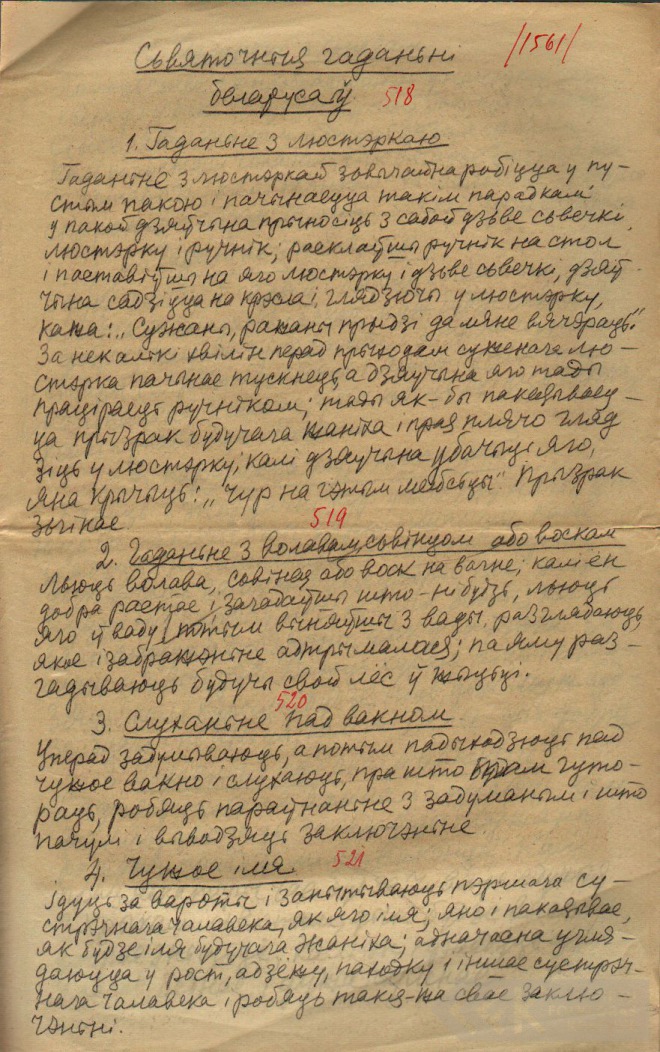 Сьвяточныя гаданьні /1561/
беларусаў 518
1. Гаданьне з люстэркаю
Гаданьне з люстэркай звычайна робіцца у пу-
стым пакою і пачынаецца такім парадкам:
у пакой дзяўчына прыносіць з сабой дзьве сьвечкі,
люстэрку і ручнік; расклаўшы ручнік на стол
і паставіўшы на яго люстэрку і дзьве сьвечкі, дзяў
чына садзіцца на крэсла і, глядзючы у люстэрку,
кажа: „Сужаны, ражаны прыдзі да мяне вячэраць".
За некалькі хвілін перад прыходам сужанага лю-
стэрка пачынае тускнець, а дзяўчына яго тады
праціраець ручніком; тады як-бы паказываец-
ца прызрак будучага жаніха і праз плячо гляд
зіць у люстэрку; калі дзяўчына убачыць яго,
яна крычыць: „Чур на гэтым месьцы". Прызрак
зьнікае. 519
2. Гаданьне з волавам, сьвінцом або воскам
Льюць волава, совінец або воск на вагне; калі ён
добра растае і, загадаўшы што-нібудзь, льюць
яго ў ваду, потым выняўшы з вады, разглядаюць,
якое ізабражэньне атрымалася; па яму раз-
гадываюць будучы свой лёс ў жыцьці.
520
3. Слуханьне пад вакном
Уперад задумываюць, а потым падыходзюць пад
чужое вакно і слухаюць, пра што там гуто-
раць, робяць параўнаньне з задуманым і што
пачулі і выводзяць заключэньне.
4. Чужое імя 521
Ідуць за вароты і запытываюць пэршага су-
стрэчнага чалавека, як яго імя; яно і паказывае,
як будзе імя будучага жаніха; адначасна угля-
даюцца у рост, адзежу, паходку і іншае сустрэч-
нага чалавека і робяць такія-жа свае заклю-
чэньні.